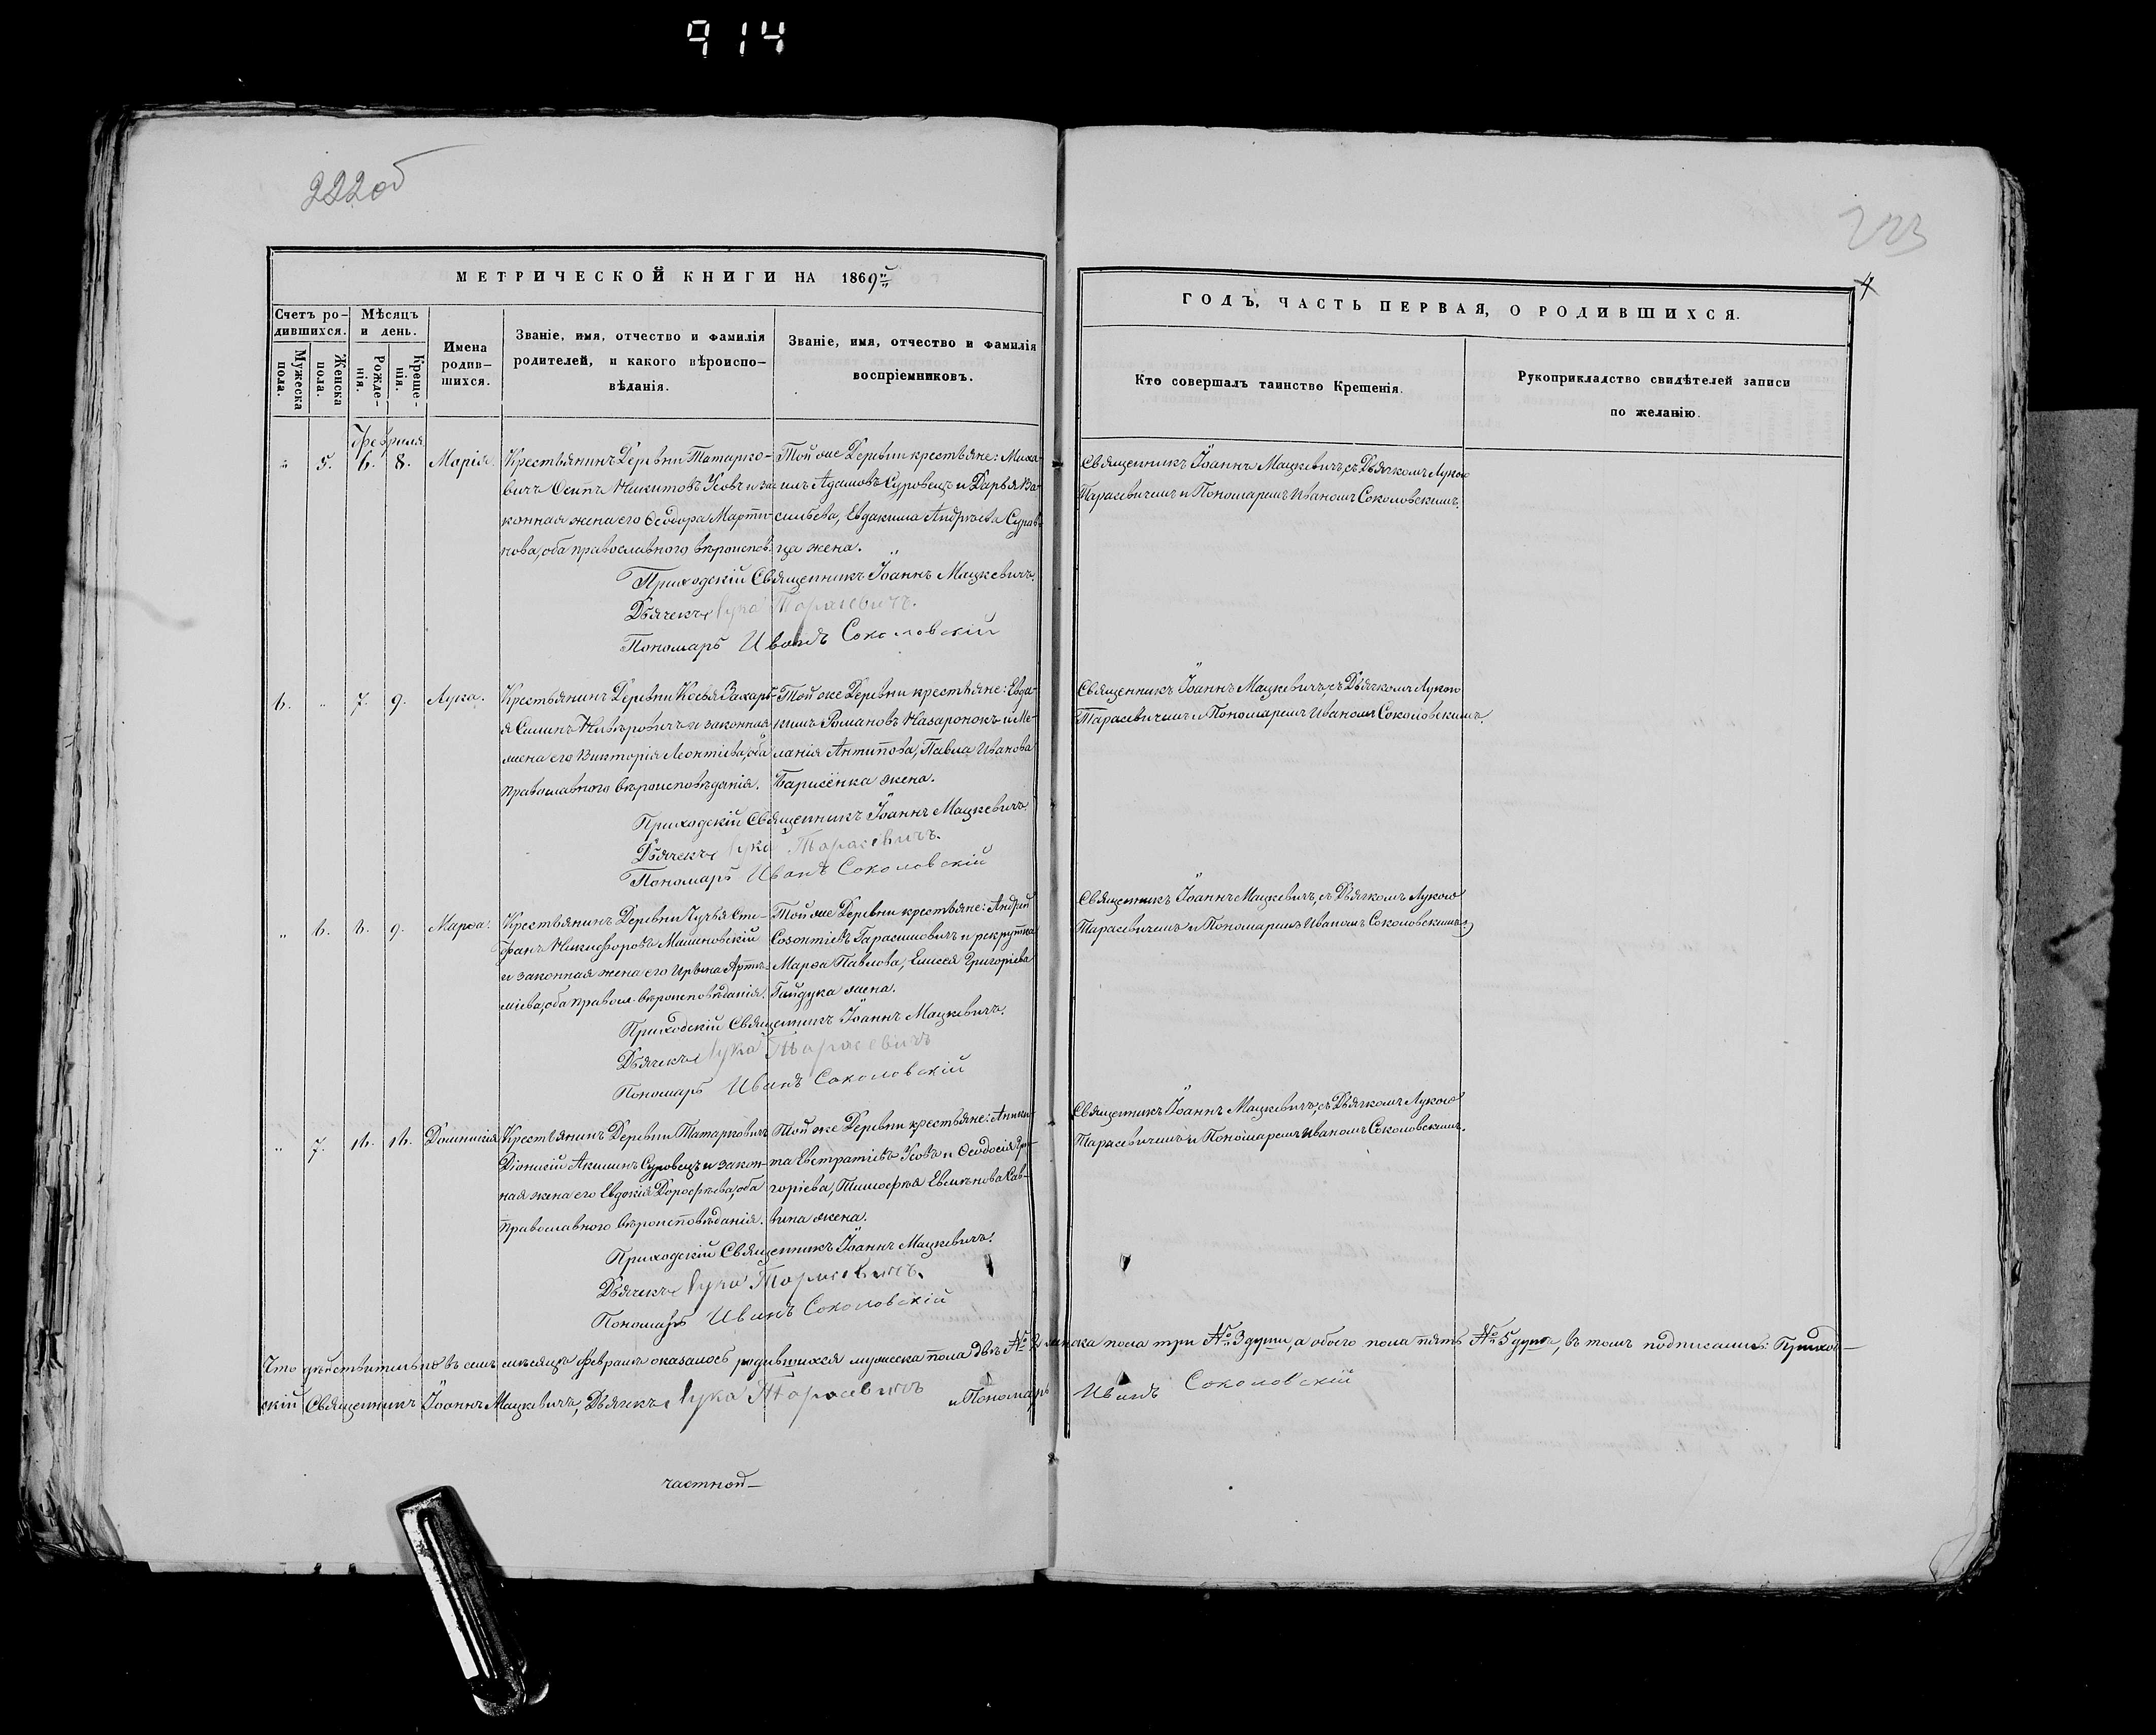 914
222об
223
4
МЕТРИЧЕСКОЙ КНИГИ НА 1869й
ГОДЪ, ЧАСТЬ ПЕРВАЯ, О РОДИВШИХСЯ.
Счетъ ро-
дившихся.
Мужеска
пола.
Женска
пола.
Мѣсяцъ
и день.
Рожде-
нія.
Креще-
нія.
Имена
родив-
шихся.
Званіе, имя, отчество и фамилія
родителей, и какого вѣроиспо-
вѣданія.
Званіе, имя, отчество и фамилія
воспріемниковъ.
Кто совершалъ таинство Крещенія.
Рукоприкладство свидѣтелей записи
по желанію.
Февраля
„ 5. 6. 8. Марія.
Крестьянинъ Деревни Татарко-
вичъ Осипъ Никитовъ Усовъ и за-
конная жена его Ѳеодора Марти-
нова, оба православного вѣроиспов.
Той же Деревни крестьяне: Миха-
илъ Адамовъ Суровецъ и Дарья Ва-
сильева, Евдакима Андрѣева Суров-
ца жена.
Священникъ Іоаннъ Мацкевичъ, съ Дьячкомъ Лукою
Тарасевичемъ и Пономаремъ Иваномъ Соколовскимъ.
Приходскій Священникъ Іоаннъ Мацкевичъ.
Дьячекъ Лука Тарасевичъ.
Пономарь Иванъ Соколовскій
6. „ 7. 9. Лука.
Крестьянинъ Деревни Косья Захарі-
я Симинъ и законная
жена его Викторія Леонтіева, оба
православного вѣроисповѣданія.
Той же Деревни крестьяне: Евда-
кимъ Романовъ Назаронокъ и Ме-
ланія Антипова, Павла Иванова
Барисёнка жена.
Священникъ Іоаннъ Мацкевичъ, съ Дьячкомъ Лукою
Тарасевичемъ и Пономаремъ Иваномъ Соколовскимъ.
Приходскій Священникъ Іоаннъ Мацкевичъ.
Дьячекъ Лука Тарасевичъ.
Пономарь Иванъ Соколовскій
„ 6. 8. 9. Марѳа.
Крестьянинъ Деревни Лучья Сте-
фанъ Никифоровъ Малиновскій
и законная жена его Ирина Арте-
міева, оба правосл. вѣроисповѣданія.
Той же Деревни крестьяне: Андрей
Созонтіевъ Гарасимовичъ и рекрутка
Марѳа Павлова, Елисея Григоріева
Гайдука жена.
Священникъ Іоаннъ Мацкевичъ, съ Дьячкомъ Лукою
Тарасевичемъ и Пономаремъ Иваномъ Соколовскимъ.
Приходскій Священникъ Іоаннъ Мацкевичъ.
Дьячекъ Лука Тарасевичъ
Пономарь Иванъ Соколовскій
„ 7. 16. 16. Домникія
Крестьянинъ Деревни Татарковичъ
Діонисій Акиминъ Суровецъ и закон-
ная жена его Евдокія Дорофѣева, оба
православного вѣроисповѣданія.
Той же Деревни крестьяне: Аники-
та Евстратіевъ Усовъ и Ѳеодосія Гри-
горіева, Тимофѣя Сав-
вина жена.
Священникъ Іоаннъ Мацкевичъ, съ Дьячкомъ Лукою
Тарасевичемъ и Пономаремъ Иваномъ Соколовскимъ.
Приходскій Священникъ Іоаннъ Мацкевичъ.
Дьячекъ Лука Тарасевичъ.
Пономарь Иванъ Соколовскій
Что дѣйствительно въ семъ мѣсяцѣ Февралѣ оказалось родившихся мужеска пола двѣ № 2 женска пола три № 3 души, а обоего пола пять № 5 душъ, въ томъ подписались: Приход-
скій Священникъ Іоаннъ Мацкевичъ, Дьячекъ Лука Тарасевичъ и Пономарь Иванъ Соколовскій
частной